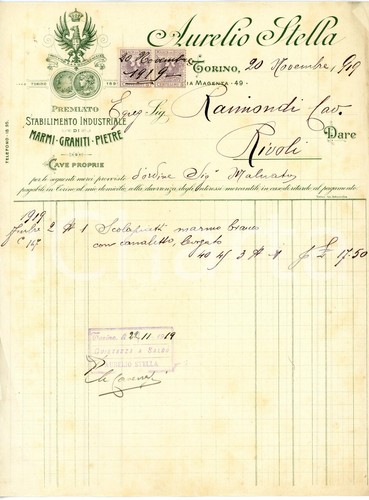 Aurelio Stella
TORINO
20 Novembre
1919
TORINO, 20 Novembre 1919
VIA MAGENTA - 49 -
TELEFONO 15 35
PREMIATO
STABILIMENTO INDUSTRIALE
DI
MARMI - GRANITI - PIETRE
CAVE PROPRIE
Egreg. Sig. Raimondi Cav.
Rivoli Dare
per le seguenti merci provviste d'ordine Sig.
pagabili in Torino al mio domicilio, colla decorrenza degli interessi mercantili in caso di ritardo al pagamento.
1919
2 1 Scolapiatti marmo bianco
con canaletto, levigato
40 45 3 £ 17.50
Torino, 11 1919
A SALDO
AURELIO STELLA